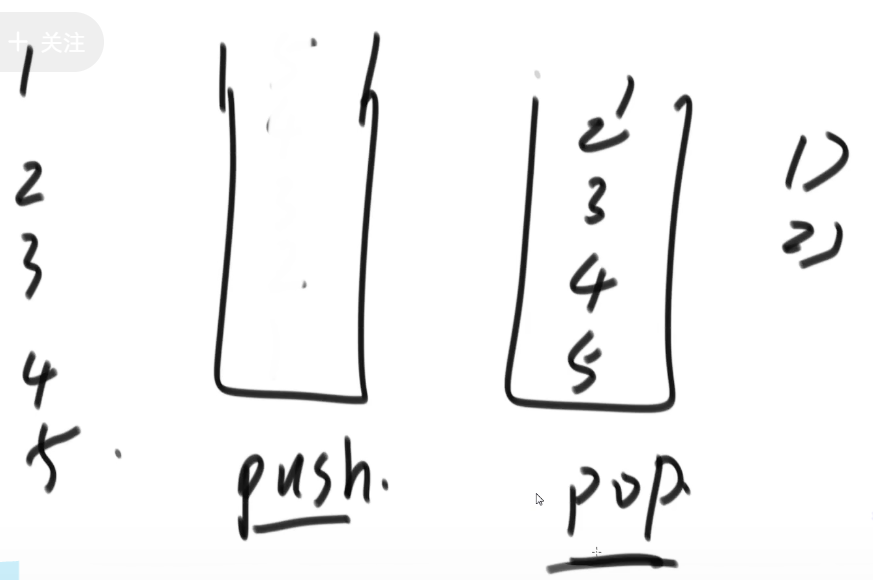 + 关注
1
2
3
4
5
push.
2
3
4
5
pop.
1)
2)